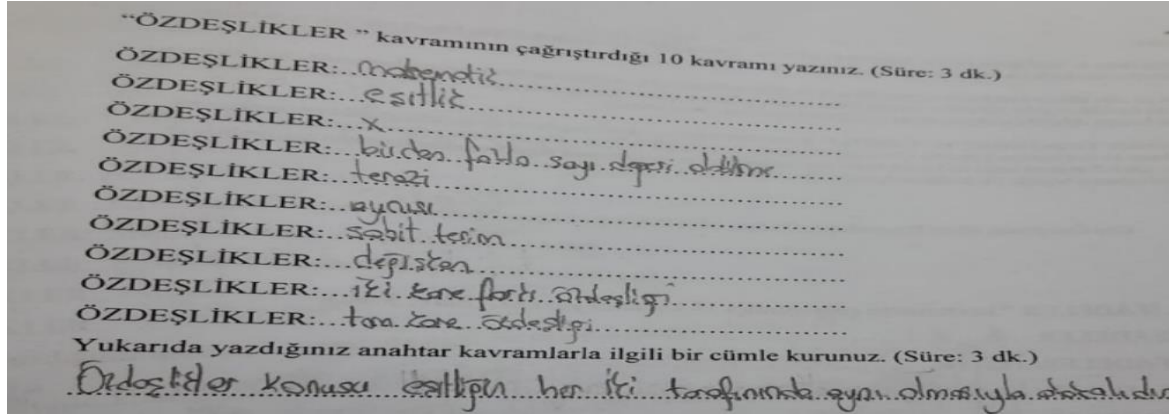 “ÖZDEŞLİKLER ” kavramının çağrıştırdığı 10 kavramı yazınız. (Süre: 3 dk.)
ÖZDEŞLİKLER:...matematik
ÖZDEŞLİKLER:...eşitlik
ÖZDEŞLİKLER:...x
ÖZDEŞLİKLER:...birden fazla sayı değeri
ÖZDEŞLİKLER:...terazi
ÖZDEŞLİKLER:...aynısı
ÖZDEŞLİKLER:...sabit terim
ÖZDEŞLİKLER:...değişken
ÖZDEŞLİKLER:...iki kare farkı özdeşliği
ÖZDEŞLİKLER:...tam kare özdeşliği
Yukarıda yazdığınız anahtar kavramlarla ilgili bir cümle kurunuz. (Süre: 3 dk.)
Özdeşlikler konusu eşitliğin her iki tarafınında aynı olmasıyla alakalıdır